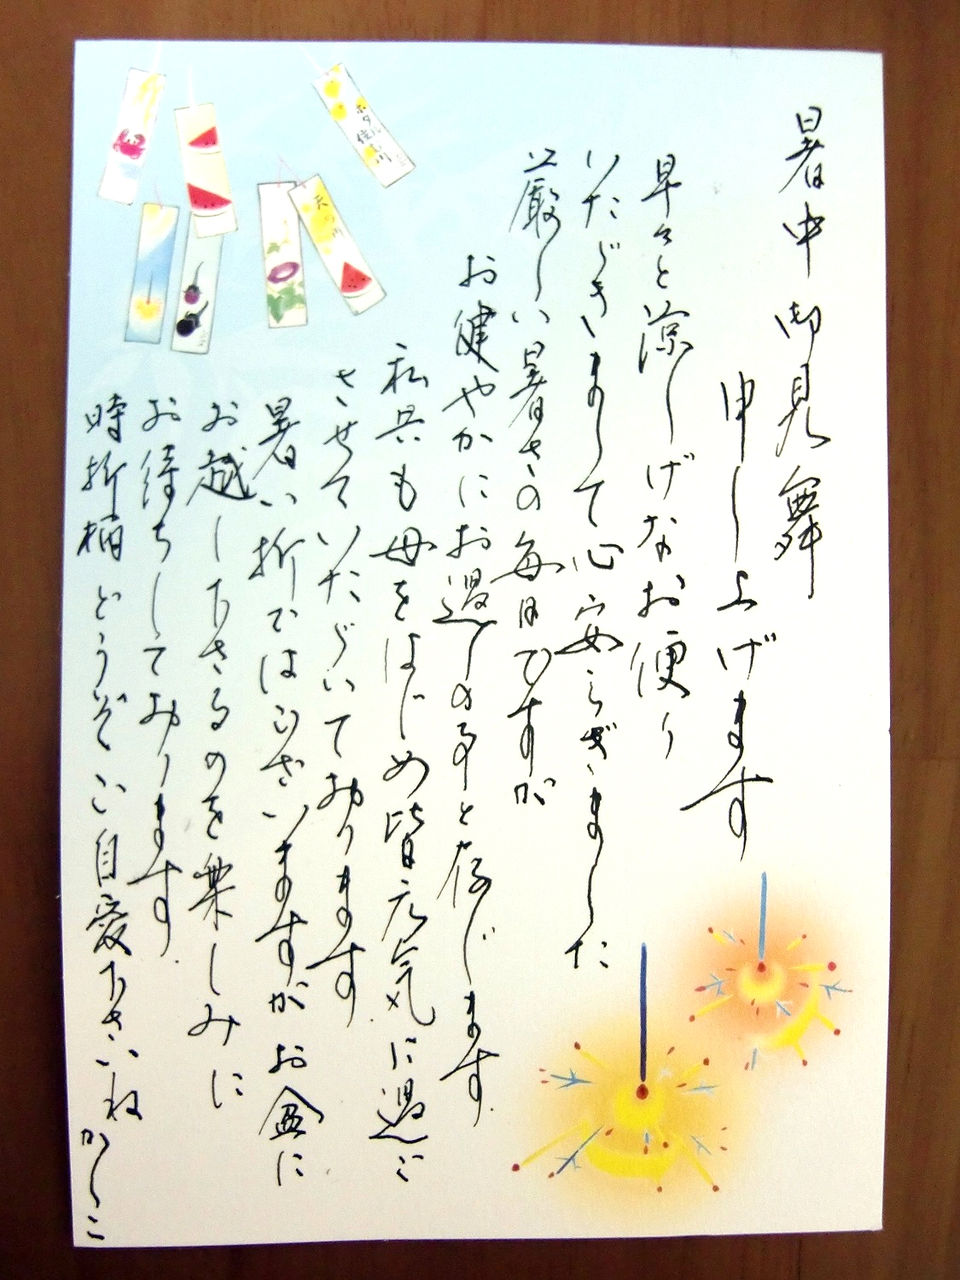 暑中御見舞
申し上げます
早々と涼しげなお便り
いただきまして心安らぎました
厳しい暑さの毎日ですが
お健やかにお過しの事と存じます
私共も母をはじめ皆元気に過ご
させていただいております
暑い折ではございますがお盆に
お越し下さるのを楽しみに
お待ちしております
時折柄どうぞご自愛下さいね
かしこ
天の川